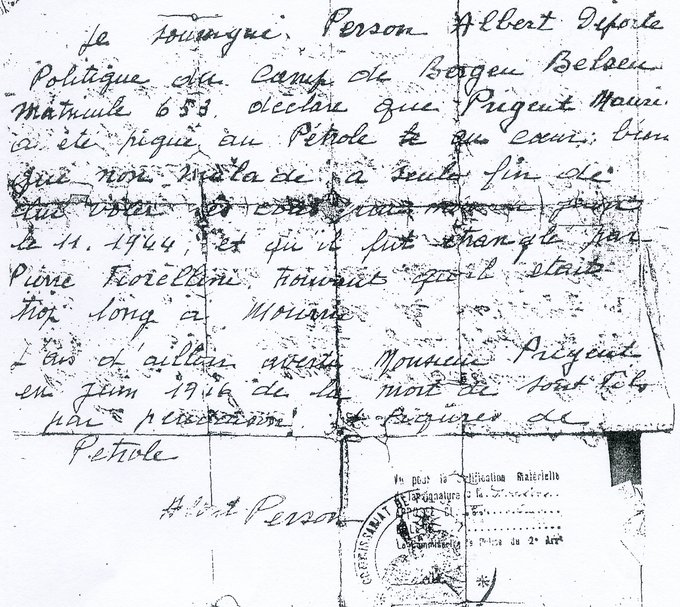 Je soussigné. Person Albert Déporte
Politique du Camp de Bergen Belsen
Matricule 653. déclare que Prigent Mauri
a été piqué au Pétrole au cœur; bien
que non malade, a seule fin de
lui voler
le 11. 1944, et qu'il fut étranglé par
Pierre Fiorellini, trouvant qu'il était
trop long à Mourir
d'ailleurs averti Monsieur Prigent
en Juin 1946 de la mort de Sont Fils
par pendaison et Piqûres de
Pétrole
Albert Person
Vu pour la Certification Matérielle
de la signature
COMMISSARIAT DE
du 2e Arrt